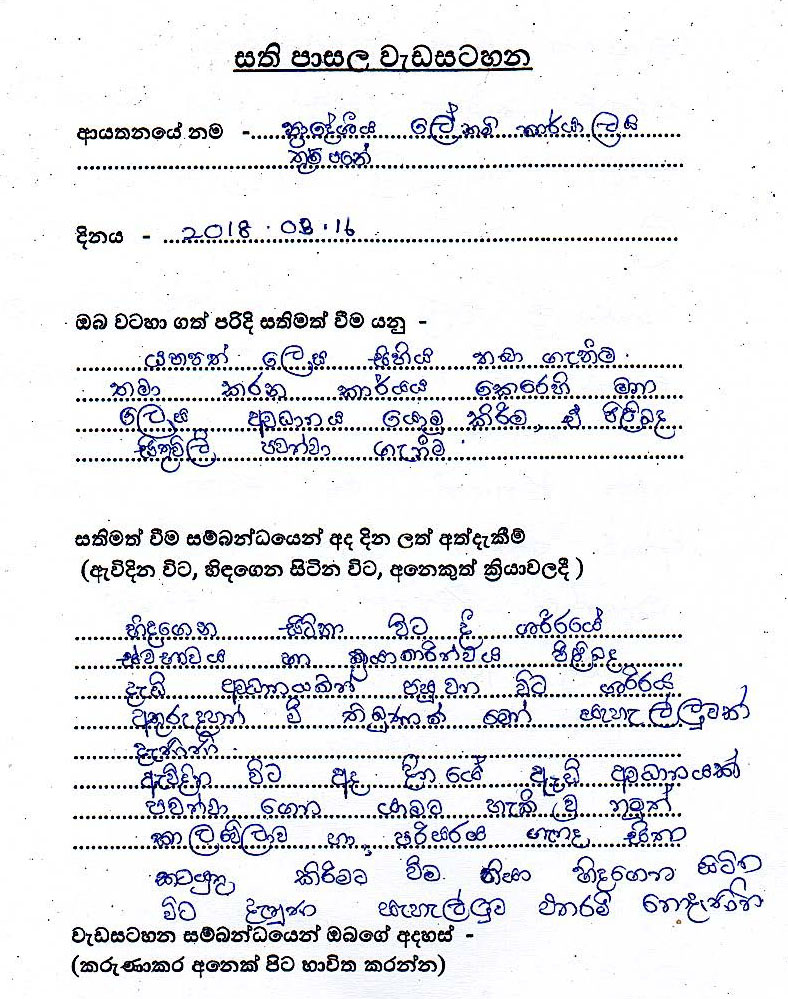 සති පාසල වැඩසටහන
ආයතනයේ නම - ප්‍රාදේශීය ලේකම් කාර්යාලය
තුම්පනේ
දිනය - 2018.03.16
ඔබ වටහා ගත් පරිදි සතිමත් වීම යනු -
යහපත් ලෙස සිහිය තබා ගැනීම.
තමා කරන කාර්යය කෙරෙහි මනා
ලෙස අවධානය යොමු කිරීම, ඒ පිළිබඳ
සිතුවිලි පවත්වා ගැනීම.
සතිමත් වීම සම්බන්ධයෙන් අද දින ලත් අත්දැකීම්
(ඇවිදින විට, හිඳගෙන සිටින විට, අනෙකුත් ක්‍රියාවලදී )
හිදගෙන සිටිනා විට දී ශරීරයේ
ස්වභාවය හා ක්‍රියාකාරීත්වය පිළිබඳ
දැඩි අවධානයකින් පසුවන විට ශරීරය
අතුරුදහන් වී තිබුණාක් මෙන් සැහැල්ලුවක්
දැනුනි.
ඇවිදින විට අද දිනයේ දැඩි අවධානයක්
පවත්වා ගෙන යාමට හැකි වූ නමුත්
කාලවේලාව හා, පරිසරය ගැනද සිතා
කටයුතු කිරීමට වීම නිසා හිදගෙන සිටින
විට දැනුන සැහැල්ලුව එතරම් නොදැනිනි
වැඩසටහන සම්බන්ධයෙන් ඔබගේ අදහස් -
(කරුණාකර අනෙක් පිට භාවිත කරන්න)